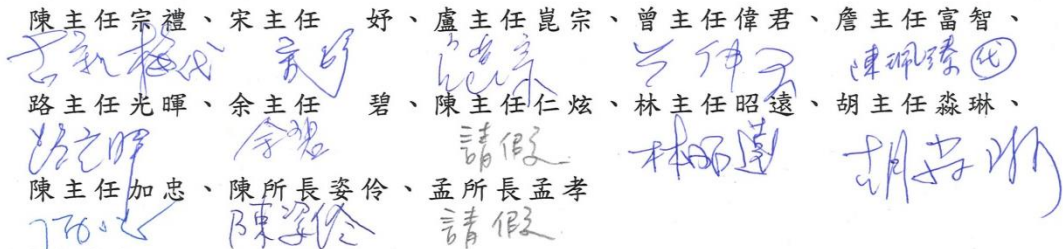 陳主任宗禮、宋主任　妤、盧主任崑宗、曾主任偉君、詹主任富智、
梅代 宋妤 陳珮臻 代
路主任光暉、余主任　碧、陳主任仁炫、林主任昭遠、胡主任淼琳、
路光暉 余碧 請假 林昭遠 胡淼琳
陳主任加忠、陳所長姿伶、孟所長孟孝
陳姿伶 請假